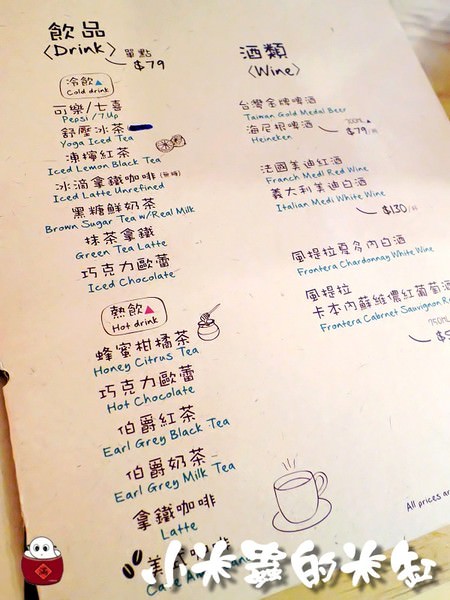 飲品
〈Drink〉
單點
$79
冷飲
Cold drink
可樂/七喜
Pepsi / 7Up
舒壓冰茶
Yoga Iced Tea
凍檸紅茶
Iced Lemon Black Tea
冰滴拿鐵咖啡(無糖)
Iced Latte Unrefined
黑糖鮮奶茶
Brown Sugar Tea w/Real Milk
抹茶拿鐵
Green Tea Latte
巧克力歐蕾
Iced Chocolate
熱飲
Hot drink
蜂蜜柑橘茶
Honey Citrus Tea
巧克力歐蕾
Hot Chocolate
伯爵紅茶
Earl Grey Black Tea
伯爵奶茶
Earl Grey Milk Tea
拿鐵咖啡
Latte
酒類
〈Wine〉
台灣金牌啤酒
Taiwan Gold Medal Beer
海尼根啤酒
Heineken
$79
法國美迪紅酒
Franch Medi Red Wine
義大利美迪白酒
Italian Medi White Wine
$130
風提拉夏多內白酒
Frontera Chardonnay White Wine
風提拉
卡本內蘇維濃紅葡萄酒
Frontera Cabrnet Sauvignon
All prices
小米蟲的米缸